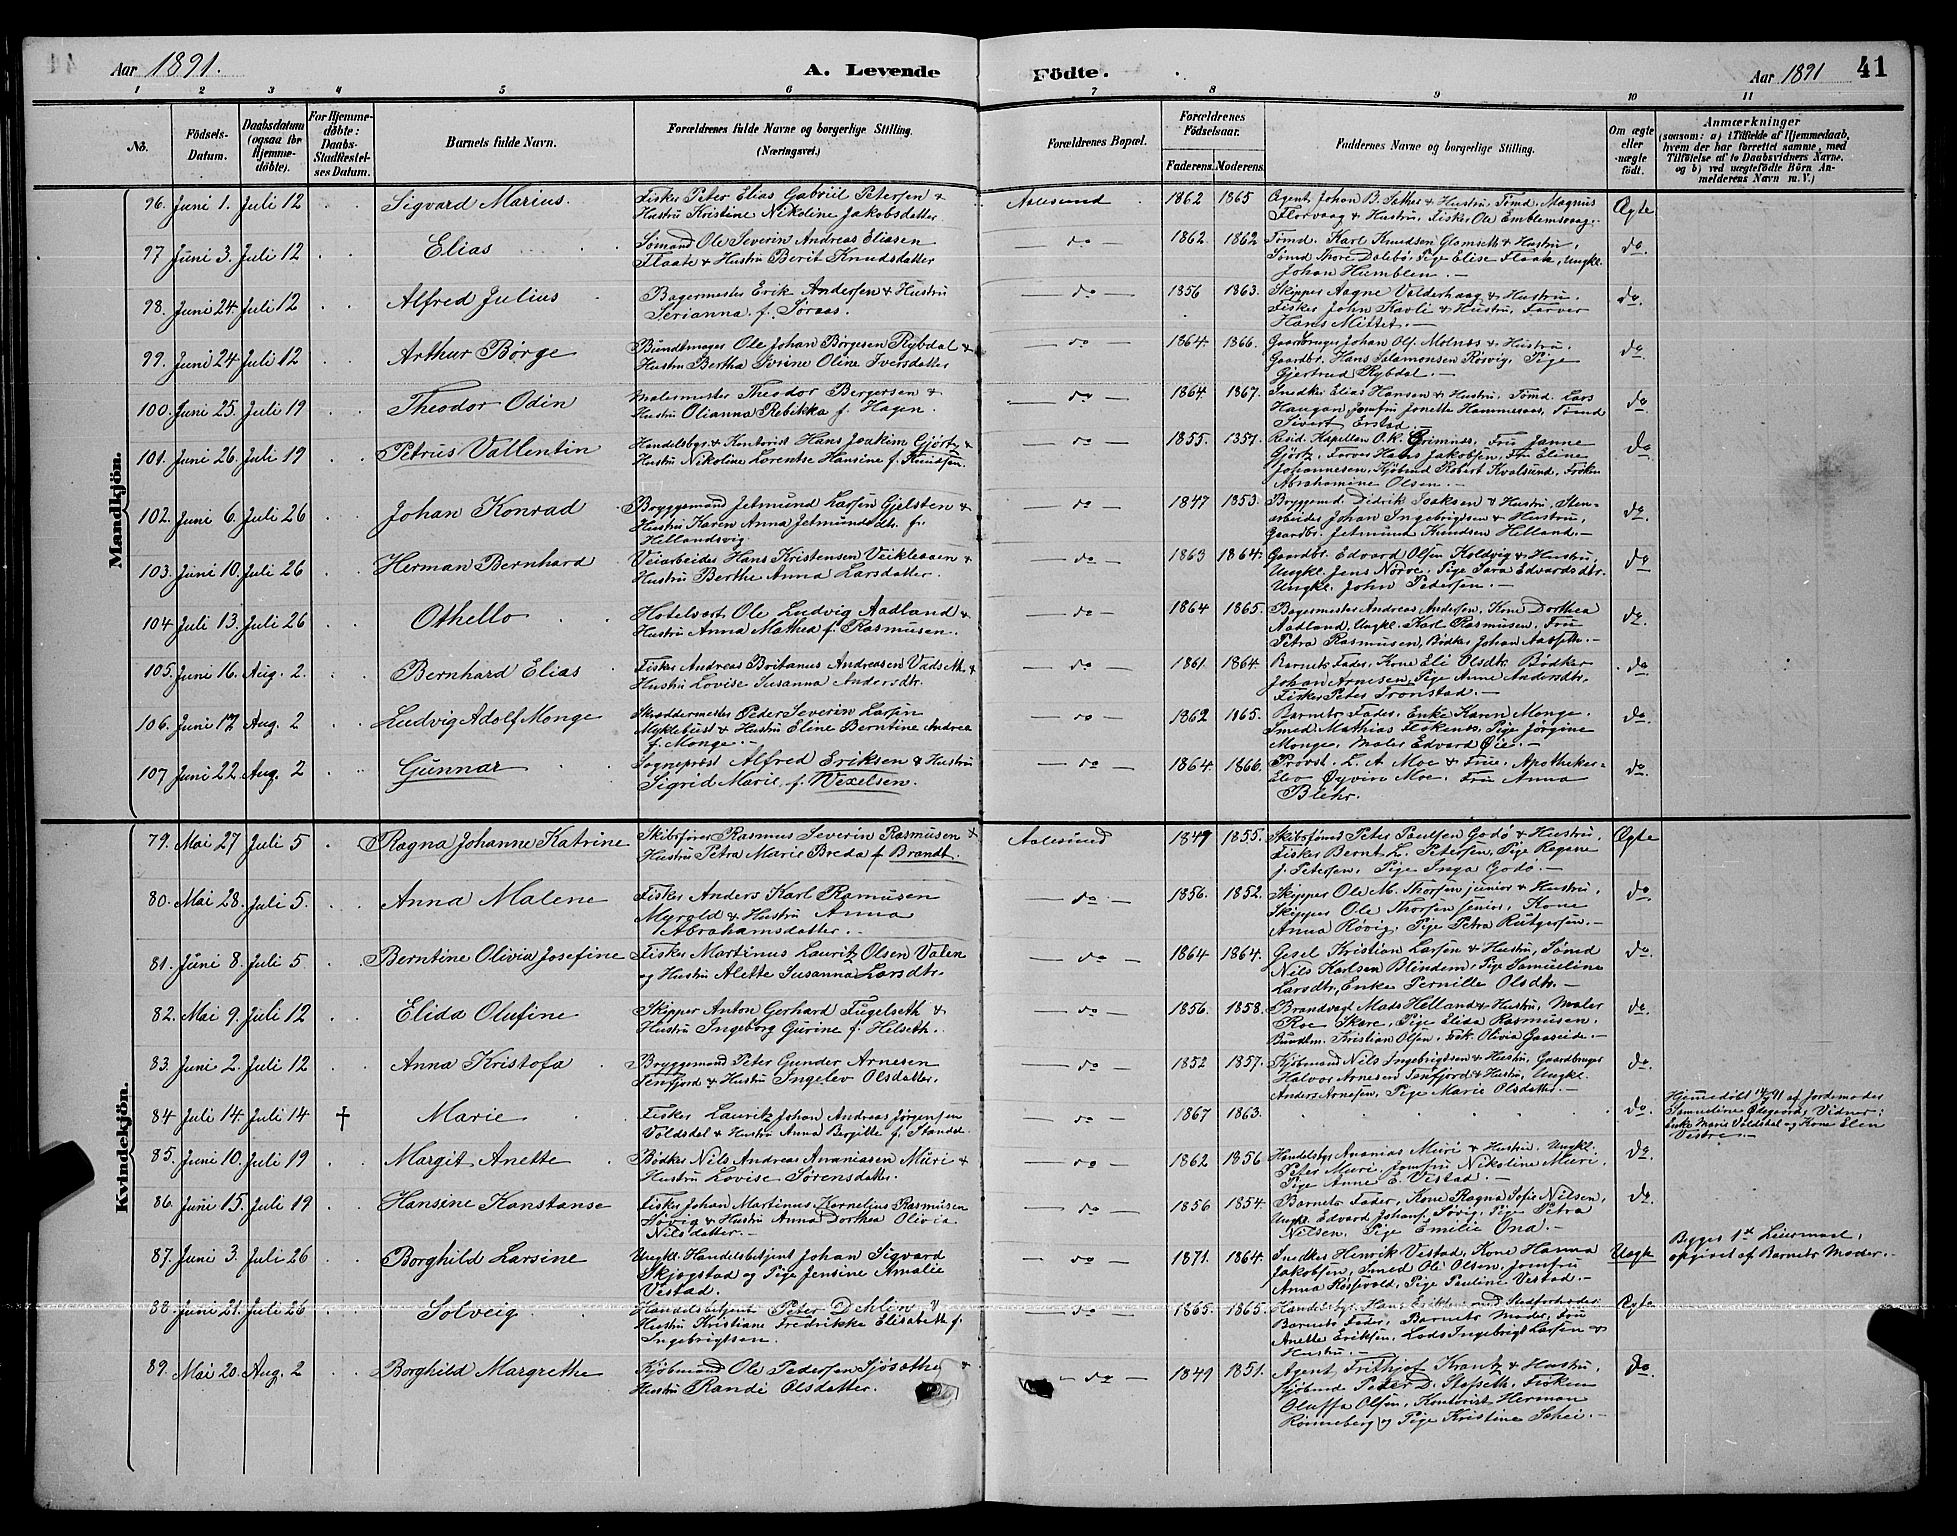 Aar 1891. A. Levende Födte. Aar 1891 41
1 2 3 4 5 6 7 8 9 10 11
No.
Födsels-Datum.
Daabsdatum (ogsaa for Hjemme-döbte).
For Hjemme-döbte: Daabs-Stadfæstel-ses Datum.
Barnets fulde Navn.
Forældrenes fulde Navne og borgerlige Stilling. (Næringsvei.)
Forældrenes Bopæl.
Forældrenes Födselsaar.
Faderens. Moderens.
Faddernes Navne og borgerlige Stilling.
Om ægte eller uægte födt.
Anmærkninger
(saasom: a) i Tilfælde af Hjemmedaab,
hvem der har forrettet samme, med
Tilföielse af to Daabsvidners Navne.
og b) ved uægtefödte Börn An-
melderens Navn m. V.)
Mandkjön.
96. Juni 1. Juli 12 Sigvard Marius. Fisker Peter Elias Gabriel Petersen &
Hustru Kristine Nikoline Jakobsdatter Aalesund 1862 1865 Agent Johan B. Sether & Hustru, Tömd. Magnus
Florvaag & Hustru, Fisker Ole Emblemsvaag. Ægte
97 Juni 3. Juli 12 Elias Sömand Ole Severin Andreas Eliasen
Flaate & Hustru Berit Knudsdatter do 1862. 1862 Tömd. Karl Knudsen Glomseth & Hustru,
Sömd Thore Dalebö, Pige Elise Flaate, Ungkl.
Johan Humblen. do.
98. Juni 24. Juli 12 Alfred Julius Bagermester Erik Andersen & Hustru
Serianna f. Söraas. do 1856 1863. Skipper Aagne Valderhaug & Hustru,
Fisker John Kavli & Hustru, Farver
Hans Mittet. do.
99. Juni 24 Juli 12 Arthur Börge Bundtmager Ole Johan Börgesen Rybdal &
Hustru Bertha Serine Oline Iversdatter do 1864 1866. Gaardbruger Johan Ols. Molnes & Hustru,
Gaardbr. Hans Salamonsen Rösvig, Pige
Gjertrud Rybdal. do
100. Juni 25. Juli 19 Theodor Odin Malermester Theodor Bergersen &
Hustru Olianna Rebikka f. Hagen. do 1864 1867. Snedker Elias Hansen & Hustru, Tömd. Lars
Haugan, Jomfru Jonette Hammeraas, Tömd
Sivert Erstad. do
101. Juni 26. Juli 19 Petrus Vallentin Handelsbgr. & Kontorist Hans Joakim Gjörtz &
Hustru Nikoline Lorentse Hansine f. Knudsen. do 1855. 1857. Resid. Kapellan O. K. Grimnes, Fru Janne
Gjörtz, Farver Hans Jakobsen, Fru Eline
Johannesen, Kjöbmd Robert Kvalsund, Fröken
Abrahamine Olsen. do
102. Juni 6. Juli 26 Johan Konrad Bryggemand Jetmund Larsen Gjelsten &
Hustru Karen Anna Jetmundsdtr. fr.
Hellandsvig. do 1847 1853. Bryggemd. Didrik Isaksen & Hustru, Sten-
arbeider Johan Ingebrigtsen & Hustru,
Gaardbr. Jetmund Knudsen Helland. do.
103. Juni 10. Juli 26 Herman Bernhard Veiarbeider Hans Kristensen Veiklesaen &
Hustru Berthe Anna Larsdatter. do 1863 1864. Gaardbr. Edvard Olsen Koldvig & Hustru,
Ungkl. Jens Nörve, Pige Sara Edvardsdtr.
Ungkl. John Pedersen. do
104 Juli 13. Juli 26 Othello Hotelvert Ole Ludvig Aadland &
Hustru Anna Mathea f. Rasmusen. do 1864 1865. Bagermester Andreas Andersen, Kone Dorthea
Aadland, Ungkl. Karl Rasmusen, Fru
Petra Rasmusen, Bödker Johan Aarseth. do.
105. Juni 16. Aug. 2. Bernhard Elias Fisker Andreas Britanus Andreasen Vadseth &
Hustru Lovise Susanna Andersdtr. do 1861 1864. Barnets Fader, Kone Eli Olsdtr. Bödker
Johan Arnesen, Pige Anne Andersdtr,
Fisker Peter Tronstad. do
106. Juni 17. Aug. 2 Ludvig Adolf Monge Skræddermester Peder Severin Larsen
Myklebust & Hustru Eline Berntine Andrea
f. Monge. do 1862 1865. Barnets Fader, Enke Karen Monge,
Smed Mathias Fiskenes, Pige Jörgine
Monge, Maler Edvard Öie. do.
107 Juni 22. Aug. 2 Gunnar Sogneprest Alfred Eriksen & Hustru
Sigrid Marie, f. Wexelsen. do 1864. 1866. Provst L. A Moe & Frue, Apotheker-
elev Öyvin Moe, Fru Anna
Blehr. do
Kvindekjön.
79. Mai 27 Juli 5 Ragna Johanne Katrine Skibsförer Rasmus Severin Rasmusen &
Hustru Petra Marie Breda f. Brandt. Aalesund 1849 1855. Skibstömd Peter Paulsen Godö & Hustru,
Fisker Bernt L. Petersen, Pige Regine
J. Petersen, Pige Inga Godö. Ægte
80. Mai 28. Juli 5. Anna Malene Fisker Anders Karl Rasmusen
Myrold & Hustru Anna
Abrahamsdatter. do 1856. 1852. Skipper Ole M. Thorsen junior & Hustru,
Skipper Ole Thorsen senior, Kone
Anna Rövig, Pige Petra Rutgersen. do
81. Juni 8. Juli 5. Berntine Olivia Josefine Fisker Martinus Lauritz Olsen Valen
og Hustru Alette Susanna Larsdtr. do 1864 1864. Gesel Kristian Larsen & Hustru, Sömd
Nils Karlsen Blindem, Pige Samueline
Larsdtr, Enke Pernille Olsdtr. do.
82. Mai 9. Juli 12 Elida Olufine Skipper Anton Gerhard Fugelseth &
Hustru Ingeborg Gurine f. Helseth. do 1856. 1858. Brandvagt Mads Helland & Hustru, Maler
Roe Skare, Pige Elida Rasmusen,
Bundtm. Kristian Olsen, Frk. Olivia Gaaseide. do
83. Juni 2. Juli 12 Anna Kristofa Bryggemand Peter Gunder Arnesen
Tenfjord & Hustru Ingelev Olsdatter. do 1852 1857. Kjöbmand Nils Ingebrigtsen & Hustru, Gaardbruger
Halvor Arnesen Tenfjord & Hustru, Ungkl.
Anders Arnesen, Pige Marie Olsdatter. do
84 Juli 14. Juli 14 † Marie Fisker Lauritz Johan Andreas Jörgensen
Voldsdal & Hustru Anna Bergitte f. Standal. do 1867 1863. do. Hjemmedöbt 14/7 91 af Jordemoder
Samueline Ödegaard, Vidner:
Enke Marie Voldsdal og Kone Elen
Vestre.
85. Juni 10. Juli 19 Margit Anette Bödker Nils Andreas Ananiasen Muri &
Hustru Lovise Sörensdatter. do 1862 1856 Handelsbgr Ananias Muri & Hustru, Ungkl.
Peter Muri, Jomfru Nikoline Muri,
Pige Anne E. Vestad. do.
86. Juni 15. Juli 19 Hansine Konstanse Fisker Johan Martinus Kornelius Rasmusen
Sövig & Hustru Anna Dorthea Olivia
Nilsdatter. do 1856 1854. Barnets Fader, Kone Ragna Sofie Nilsen,
Ungkl. Edvard Johans. Sövig, Pige Petra
Nilsen, Pige Emilie Ona. do.
87. Juni 3. Juli 26 Borghild Larsine Ungkl. Handelsbetjent Johan Sigvard
Skjegstad og Pige Jensine Amalie
Vestad. do 1871. 1864. Snedker Henrik Vestad, Kone Hanna
Jakobsen, Smed Ole Olsen, Jomfru
Anna Röstvold, Pige Pauline Vestad. Uægte Begges 1st Leiermaal,
opgivet af Barnets Moder.
88. Juni 21. Juli 26 Solveig Handelsbetjent Peter Dehlin &
Hustru Kristiane Fredrikke Elisabeth f.
Ingebrigtsen. do 1865. 1865. Handelsbgr. Hans Eriksen med Stedfortræder
Barnets Fader, Barnets Moder, Fru
Anette Eriksen, Lods Ingebrigt Larsen &
Hustru. Ægte
89. Mai 20. Aug. 2 Borghild Margrethe Kjöbmand Ole Pedersen Sjösæther &
Hustru Randi Olsdatter. do 1849 1851. Agent Frithjof Krantz & Hustru,
Kjöbmd Peter D. Stafseth, Fröken
Oluffa Olsen, Kontorist Herman
Rönneberg og Pige Kristine Schei. do